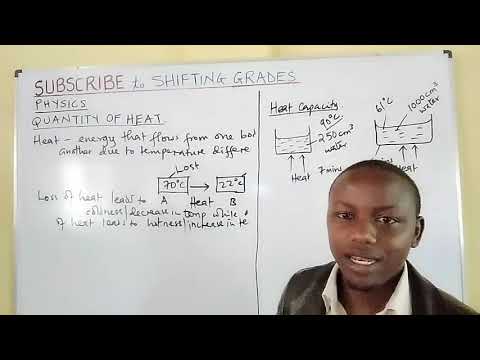 SUBSCRIBE to SHIFTING GRADES
PHYSICS
QUANTITY OF HEAT
Heat - energy that flows from one bod
another due to temperature differe
Lost
70°C → 22°C
A Heat B
Loss of heat leads to
coldness/decrease in temp while
of heat leads to hotness/increase in te
Heat Capacity
90°C
250cm³
water
Heat 7mins
61°C
1000cm³
water
Heat